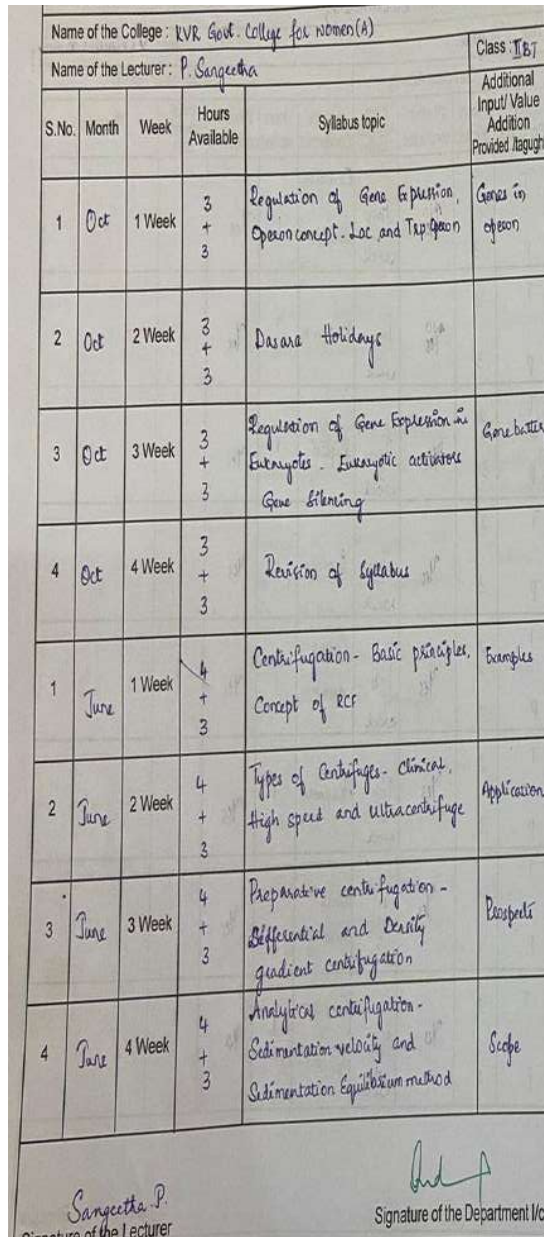 Name of the College : KVR Govt. College for women(A)
Name of the Lecturer : P. Sangeetha
Class : II BT
S.No. Month Week Hours Available Syllabus topic Additional Input/ Value Addition Provided /tagught
1 Oct 1 Week 3 + 3 Regulation of Gene Expression, Genes in
Operon concept - Lac and Trp operon operon
2 Oct 2 Week 3 + 3 Dasara Holidays
3 Oct 3 Week 3 + 3 Regulation of Gene Expression in Gene
Eukaryotes - Eukaryotic activators
Gene Silencing
4 Oct 4 Week 3 + 3 Revision of Syllabus
1 June 1 Week 4 + 3 Centrifugation - Basic principles, Examples
Concept of RCF
2 June 2 Week 4 + 3 Types of Centrifuges - Clinical, Application
High speed and ultracentrifuge
3 June 3 Week 4 + 3 Preparative centrifugation - Prospects
Differential and Density
gradient centrifugation
4 June 4 Week 4 + 3 Analytical centrifugation - Scope
Sedimentation velocity and
Sedimentation Equilibrium method
Sangeetha P.
Signature of the Lecturer
Signature of the Department I/c